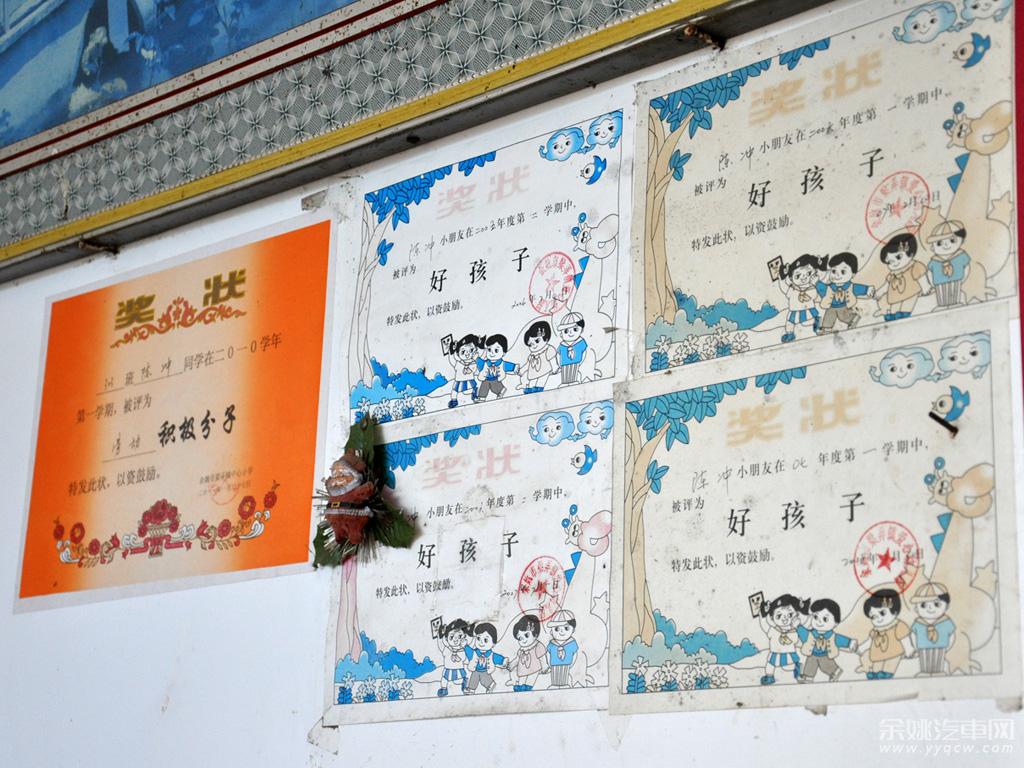 奖状
班陈冲同学在二〇一〇学年
第一学期，被评为
积极分子
特发此状，以资鼓励。
奖状
陈冲小朋友在2003年度第二学期中，
被评为
好孩子
特发此状，以资鼓励。
奖状
陈冲小朋友在 年度第一学期中，
被评为
好孩子
特发此状，以资鼓励。
奖状
小朋友在 年度第二学期中，
好孩子
特发此状，以资鼓励。
奖状
陈冲小朋友在06年度第一学期中，
被评为
好孩子
特发此状，以资鼓励。
余姚汽車网
www.yyqcw.com